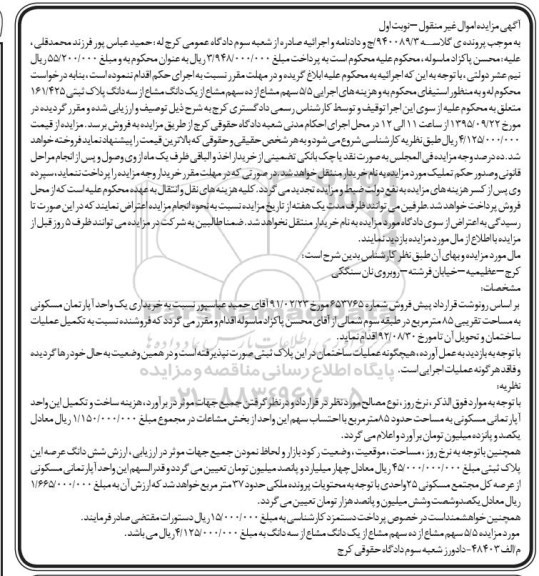 آگهی مزایده اموال غیر منقول – نوبت اول
به موجب پرونده ی کلاسه ۹۴۰۰۸۹/۳/ج و دادنامه و اجرائیه صادره از شعبه سوم دادگاه عمومی کرج له: حمید عباس پور فرزند محمدقلی،
علیه: محسن پاکزاد ماسوله، محکوم علیه محکوم است به پرداخت مبلغ ۳/۹۴۸/۰۰۰/۰۰۰ ریال به عنوان محکوم به و مبلغ ۵۵/۲۰۰/۰۰۰ ریال
نیم عشر دولتی، با توجه به این که اجرائیه به محکوم علیه ابلاغ گردیده و در مهلت مقرر نسبت به اجرای حکم اقدام ننموده است، بنابه درخواست
محکوم له و به منظور استیفای محکوم به و هزینه های اجرایی ۵/۵ سهم مشاع از ده سهم مشاع از یک دانگ مشاع از سه دانگ پلاک ثبتی ۱۶۱/۴۲۵
متعلق به محکوم علیه از سوی این اجرا توقیف و توسط کارشناس رسمی دادگستری کرج به شرح ذیل توصیف و ارزیابی شده و مقرر گردیده در
مورخ ۱۳۹۵/۰۹/۲۲ از ساعت ۱۱ الی ۱۲ در محل اجرای احکام مدنی شعبه دادگاه حقوقی کرج از طریق مزایده به فروش برسد. مزایده از قیمت
۴/۱۲۵/۰۰۰/۰۰۰ ریال طبق نظریه کارشناسی شروع می شود و به هر شخص حقیقی و حقوقی که بالاترین قیمت را پیشنهاد نماید فروخته خواهد
شد. ده درصد وجه مزایده فی المجلس به صورت نقد یا چک بانکی تضمینی از خریدار اخذ و الباقی ظرف یک ماه از وی وصول و پس از انجام مراحل
قانونی و صدور حکم تملیک مورد مزایده به نام خریدار منتقل خواهد شد. در صورتی که در مهلت مقرر خریدار وجه مزایده را پرداخت ننماید، سپرده
وی پس از کسر هزینه های مزایده به نفع دولت ضبط و مزایده تجدید می گردد. کلیه هزینه های نقل و انتقال به عهده محکوم علیه است که از محل
فروش پرداخت خواهد شد. طرفین می توانند ظرف مدت یک هفته از تاریخ مزایده نسبت به نحوه انجام مزایده اعتراض نمایند که در این صورت تا
رسیدگی به اعتراض از سوی دادگاه مورد مزایده به نام خریدار منتقل نخواهد شد. ضمنا طالبین به شرکت در مزایده می توانند ظرف ۵ روز قبل از
مزایده با اطلاع از مال مورد مزایده بازدید نمایند.
مال مورد مزایده و بهای آن طبق نظر کارشناس بدین شرح است:
کرج – عظیمیه – خیابان فرشته – روبروی نان سنگکی
مشخصات:
بر اساس رونوشت قرارداد پیش فروش شماره ۶۵۳۷۶۵ مورخ ۹۱/۰۲/۲۳ آقای حمید عباسپور نسبت به خریداری یک واحد آپارتمان مسکونی
به مساحت تقریبی ۸۵ مترمربع در طبقه سوم شمالی از آقای محسن پاکزاد ماسوله اقدام و مقرر می گردد که فروشنده نسبت به تکمیل عملیات
ساختمان و تحویل آن تا مورخ ۹۲/۰۸/۳۰ اقدام نماید.
با توجه به بازدید به عمل آورده، هیچگونه عملیات ساختمان در این پلاک ثبتی صورت نپذیرفته است و در همین وضعیت به حال خود رها گردیده
و فاقد هر گونه عملیات اجرایی است.
نظریه:
با توجه به موارد فوق الذکر، نرخ روز، نوع مصالح مورد نظر در قرارداد و در نظر گرفتن جمیع جهات موثر در برآورد، هزینه ساخت و تکمیل این واحد
آپارتمانی مسکونی به مساحت حدود ۸۵ مترمربع با احتساب سهم این واحد از بخش مشاعات در مجموع مبلغ ۱/۱۵۰/۰۰۰/۰۰۰ ریال معادل
یکصد و پانزده میلیون تومان برآورد و اعلام می گردد.
همچنین با توجه به نرخ روز، مساحت، موقعیت، وضعیت رکود بازار و لحاظ نمودن جمیع جهات موثر در ارزیابی، ارزش شش دانگ عرصه این
پلاک ثبتی مبلغ ۴۵/۰۰۰/۰۰۰/۰۰۰ ریال معادل چهار میلیارد و پانصد میلیون تومان تعیین می گردد و قدرالسهم این واحد آپارتمانی مسکونی
از عرصه کل مجتمع مسکونی ۲۵ واحدی با توجه به محتویات پرونده ملکی حدود ۳۷ متر مربع خواهد شد که ارزش آن به مبلغ ۱/۶۶۵/۰۰۰/۰۰۰
ریال معادل یکصدوشصت وشش میلیون و پانصدهزار تومان تعیین می گردد.
همچنین خواهشمنداست در خصوص پرداخت دستمزد کارشناسی به مبلغ ۱۵/۰۰۰/۰۰۰ ریال دستورات مقتضی صادر فرمایند.
مورد مزایده ۵/۵ سهم مشاع از ده سهم مشاع از یک دانگ مشاع از سه دانگ به مبلغ ۴/۱۲۵/۰۰۰/۰۰۰ ریال می باشد.
م/الف ۴۸۴۰۳ – دادورز شعبه سوم دادگاه حقوقی کرج
پایگاه اطلاع رسانی مناقصه و مزایده
۰۲۱-۸۸۳۴۹۶۷۰-۵